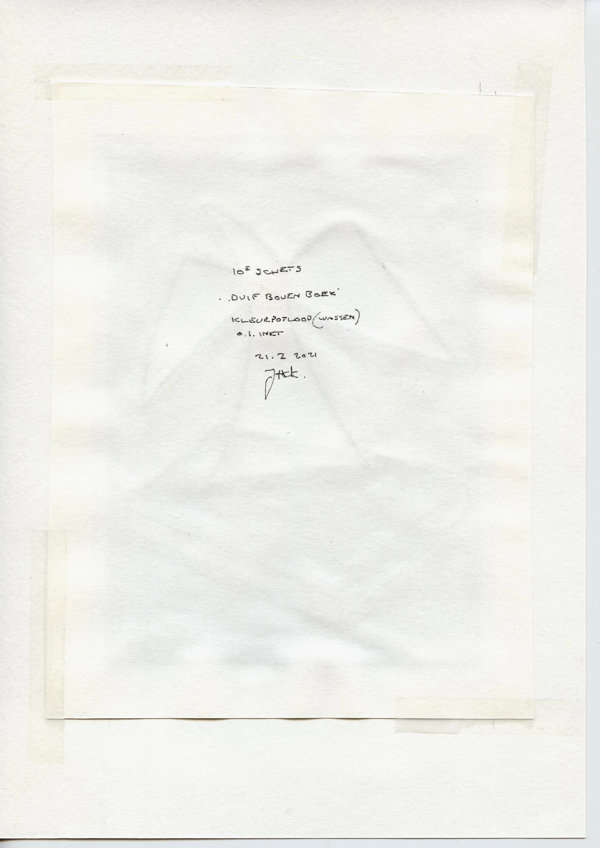 10E SCHETS
"DUIF BOVEN BOEK"
KLEURPOTLOOD (WASSEN)
O.I. INKT
21.2 2021